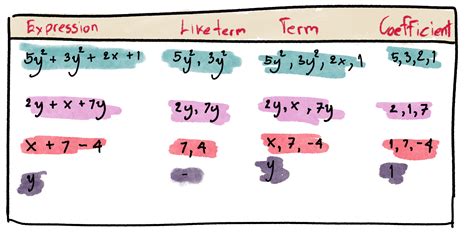 Expression Like term Term Coefficient
5y² + 3y² + 2x + 1 5y², 3y² 5y², 3y², 2x, 1 5, 3, 2, 1
2y + x + 7y 2y, 7y 2y, x, 7y 2, 1, 7
x + 7 - 4 7, 4 x, 7, -4 1, 7, -4
y - y 1